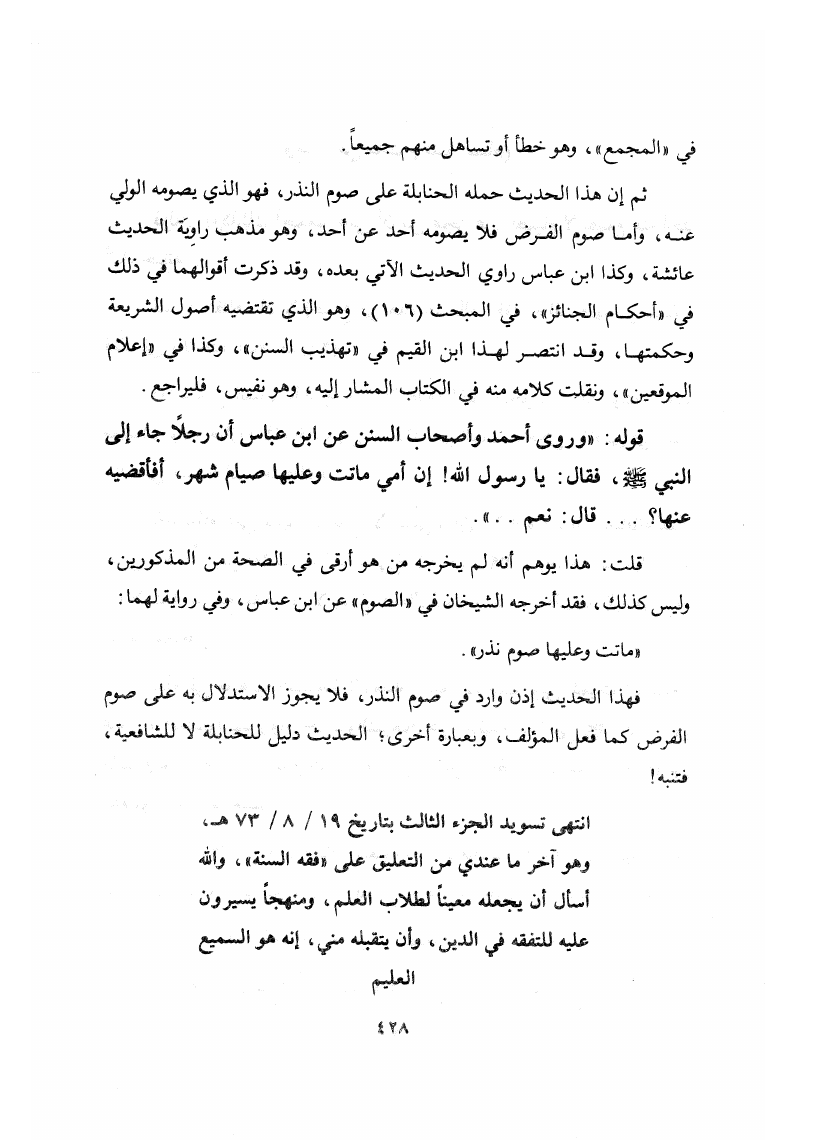 في «المجمع»، وهو خطأ أو تساهل منهم جميعاً.
ثم إن هذا الحديث حمله الحنابلة على صوم النذر، فهو الذي يصومه الولي
عنه، وأما صوم الفرض فلا يصومه أحد عن أحد، وهو مذهب راوية الحديث
عائشة، وكذا ابن عباس راوي الحديث الآتي بعده، وقد ذكرت أقوالهما في ذلك
في «أحكام الجنائز»، في المبحث (١٠٦)، وهو الذي تقتضيه أصول الشريعة
وحكمتها، وقد انتصر لهذا ابن القيم في «تهذيب السنن»، وكذا في «إعلام
الموقعين»، ونقلت كلامه منه في الكتاب المشار إليه، وهو نفيس، فليراجع.
قوله: «وروى أحمد وأصحاب السنن عن ابن عباس أن رجلاً جاء إلى
النبي ﷺ، فقال: يا رسول الله! إن أمي ماتت وعليها صيام شهر، أفأقضيه
عنها؟ ... قال: نعم ..».
قلت: هذا يوهم أنه لم يخرجه من هو أرقى في الصحة من المذكورين،
وليس كذلك، فقد أخرجه الشيخان في «الصوم» عن ابن عباس، وفي رواية لهما:
«ماتت وعليها صوم نذر».
فهذا الحديث إذن وارد في صوم النذر، فلا يجوز الاستدلال به على صوم
الفرض كما فعل المؤلف، وبعبارة أخرى؛ الحديث دليل للحنابلة لا للشافعية،
فتنبه!
انتهى تسويد الجزء الثالث بتاريخ ١٩ / ٨ / ٧٣ هـ،
وهو آخر ما عندي من التعليق على «فقه السنة»، والله
أسأل أن يجعله معيناً لطلاب العلم، ومنهجاً يسيرون
عليه للتفقه في الدين، وأن يتقبله مني، إنه هو السميع
العليم
٤٢٨